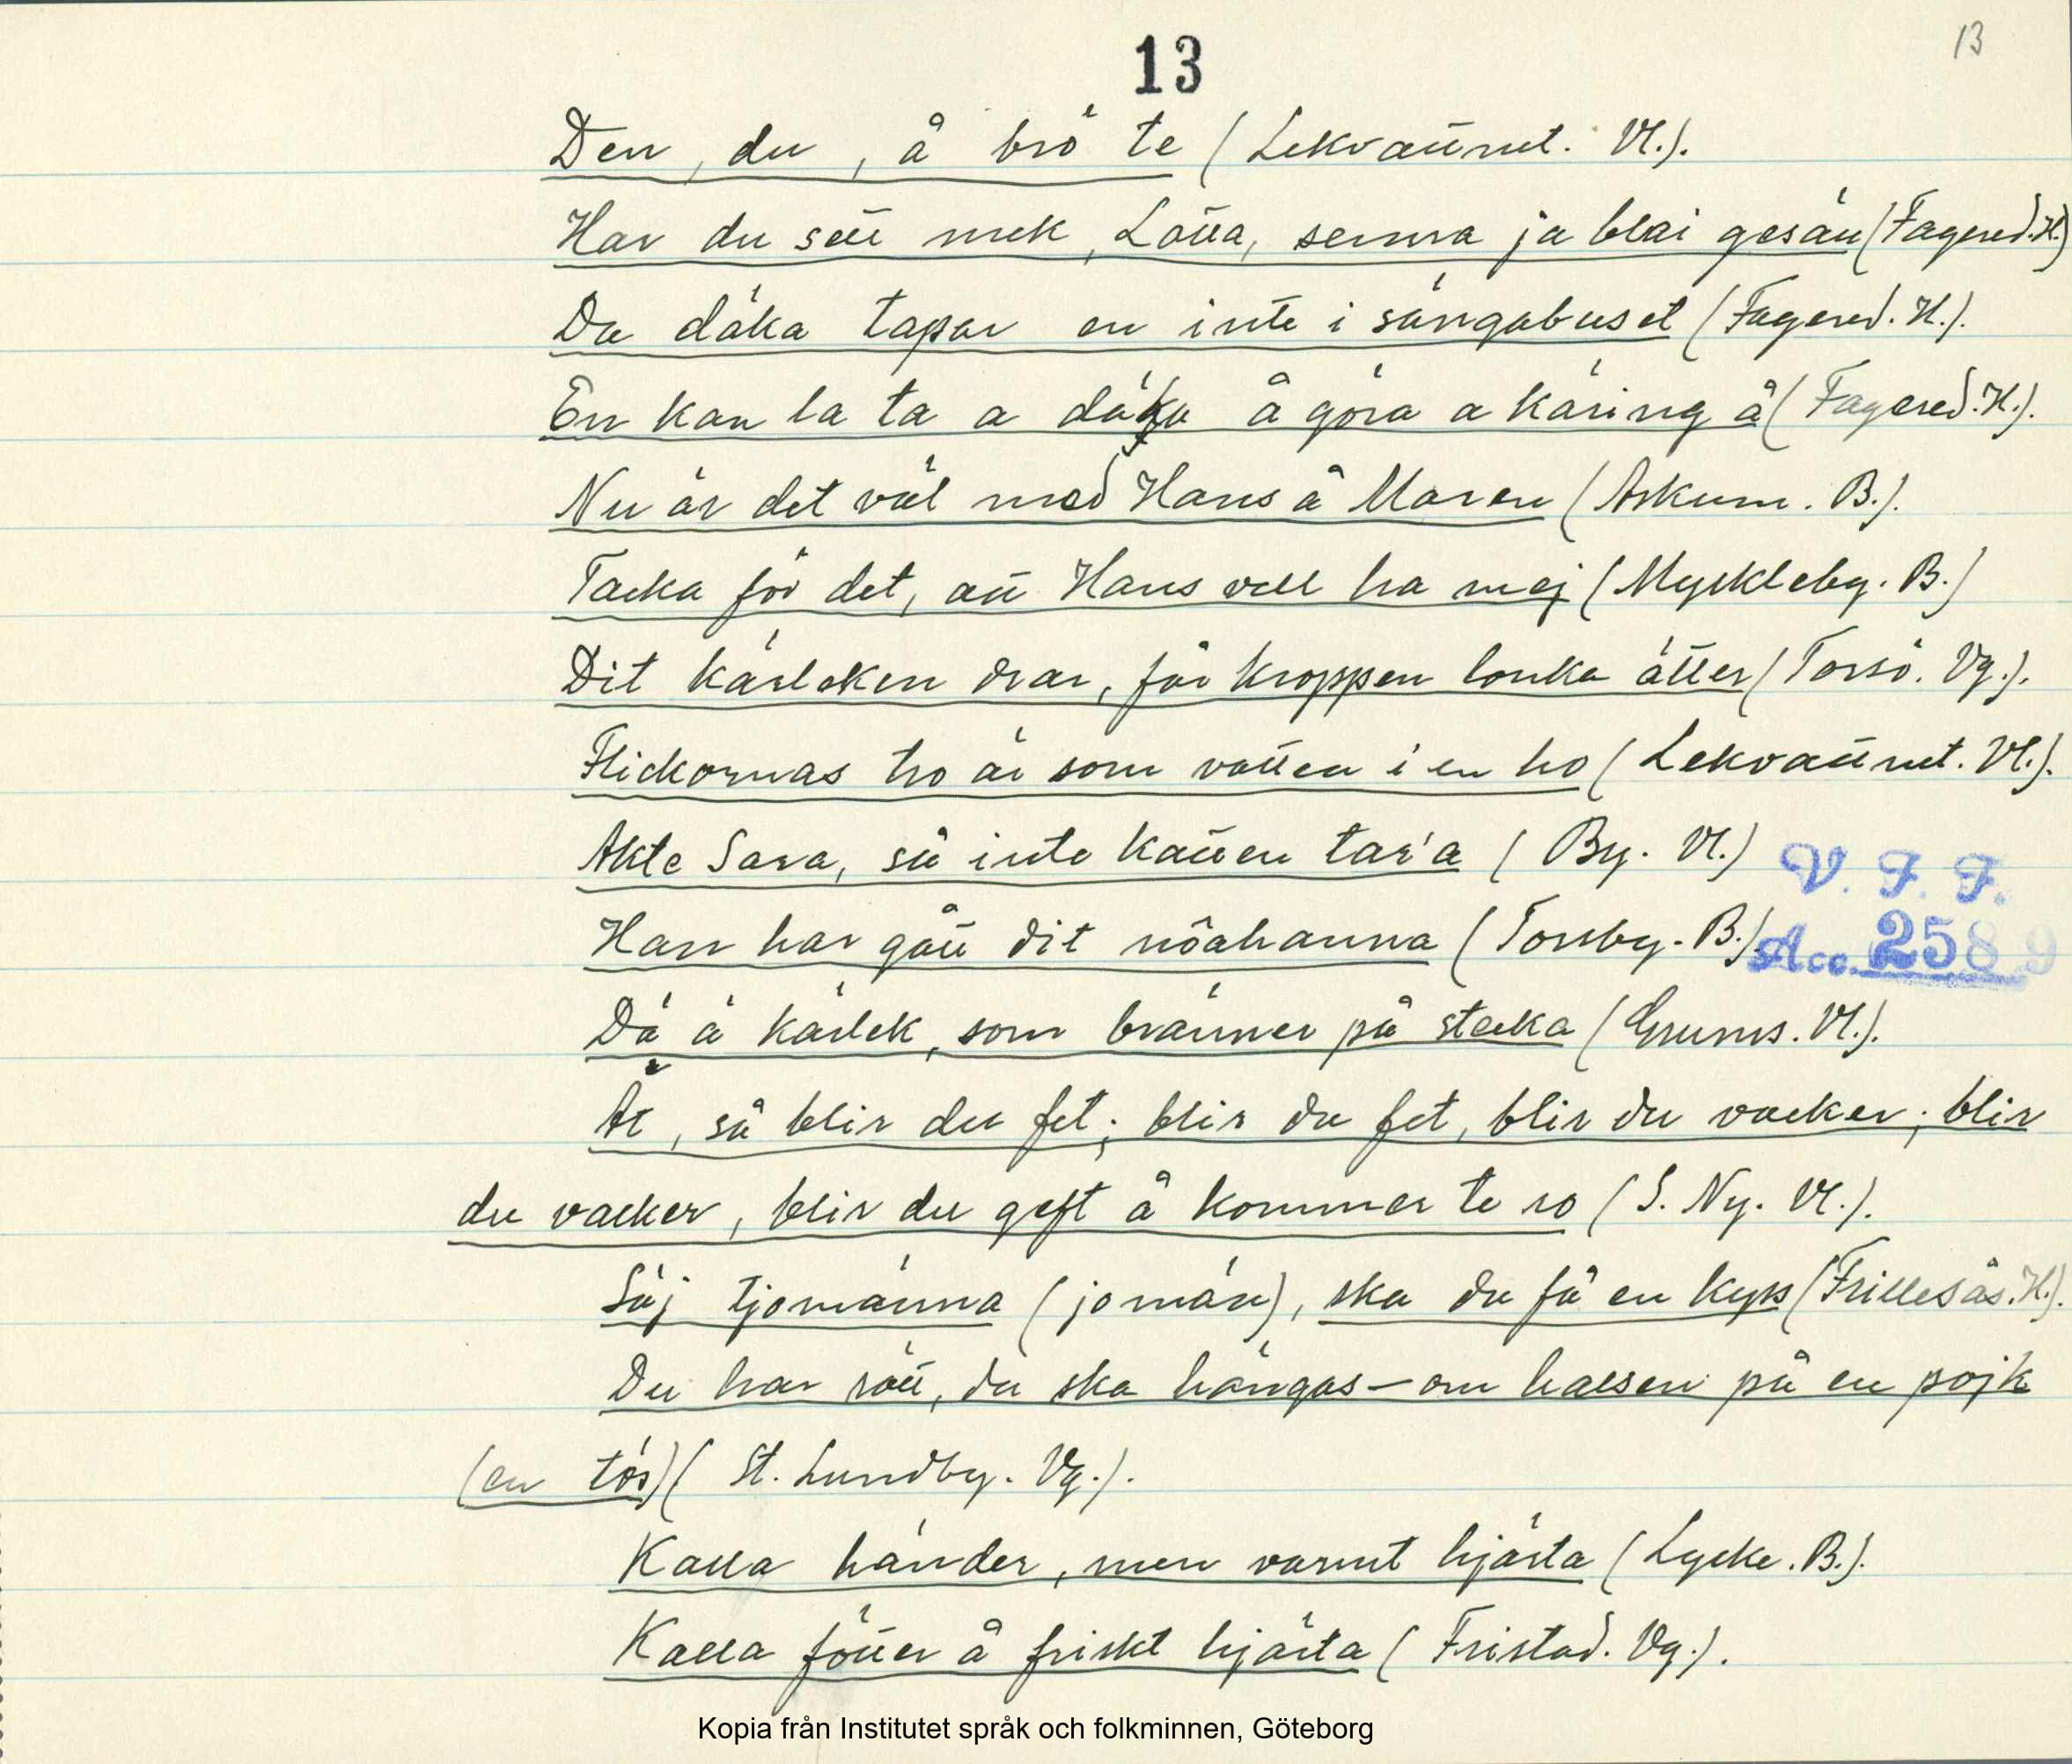 13
13
Den, du, å brö te (Lekvattnet. Vl.).
Har du sett mek, Lotta, senna ja blai gesän (Fagered. H.)
Da däka tapar en inte i sängabuset (Fagered. H.).
En kan la ta a däka å göra a käring å (Fagered. H.).
Nu är det väl med Hans å Maren (Askum. B.).
Tacka för det, att Hans vell ha mej (Myckleby. B.)
Dit kärleken drar, får kroppen lonka ätter (Torsö. Vg.).
Flickornas tro är som vatten i en ho (Lekvattnet. Vl.).
Akte Sara, så inte katten tar'a (By. Vl.)
V. F. F.
Han har gått dit nôahanna (Torsby. B.).
Acc. 2589
Dä ä kärlek, som bränner på stacka (Grums. Vl.).
Ät, så blir du fet; blir du fet, blir du vacker; blir
du vacker, blir du geft å kommer te ro (S. Ny. Vl.).
Säj tjomänna (jomän), ska du få en kyss (Frillesås. H.).
Du har rätt, du ska hängas – om halsen på en pojk
(en tös) (St. Lundby. Vg.).
Kalla händer, men varmt hjärta (Lycke. B.).
Kalla fötter å friskt hjärta (Fristad. Vg.).
Kopia från Institutet språk och folkminnen, Göteborg